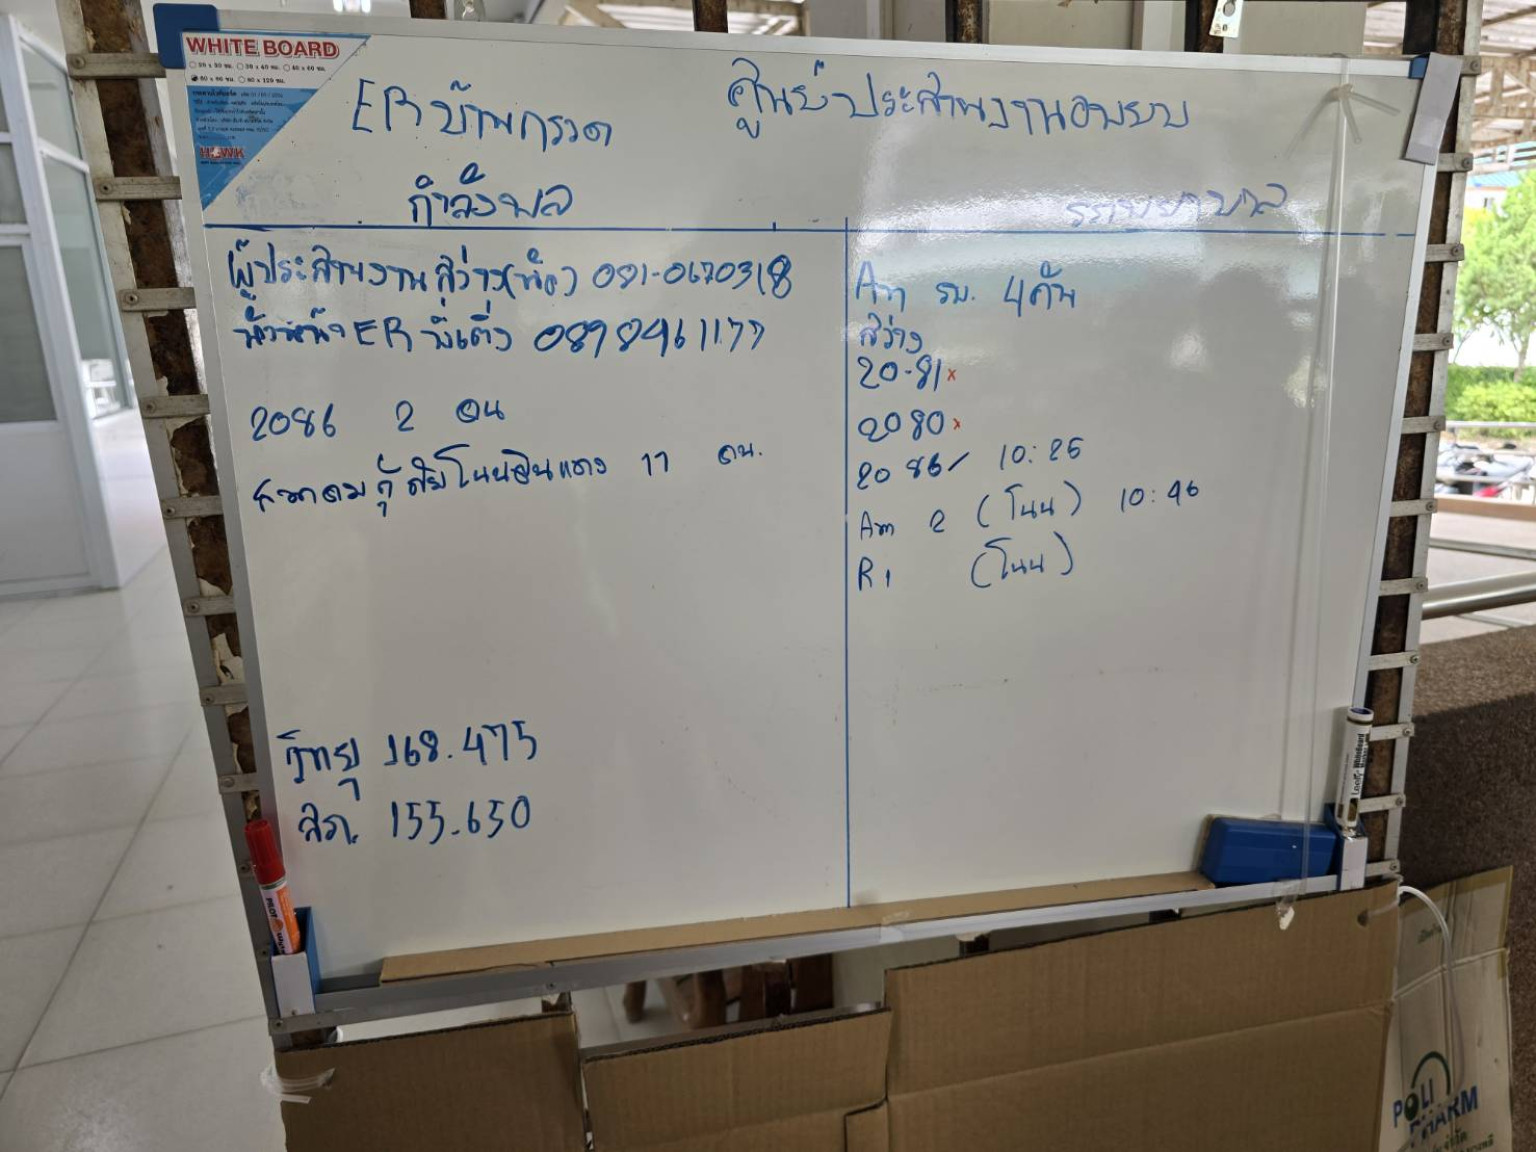 WHITE BOARD
HAWK
ER บ้านกรวด
ศูนย์ประสานงานอพยพ
กำลังพล
รถพยาบาล
ผู้ประสานงาน สว่าง(พัด) 081-0670318
หัวหน้า ER พี่เติ่ง 0898461177
2086 2 คน
กู้ภัยโนนดินแดง 17 คน.
วิทยุ 168.475
สภ. 155.650
Am รพ. 4 คัน
สว่าง
20-81 x
2080 x
2086 / 10:26
Am 2 (โนน) 10:46
R1 (โนน)
PILOT
POLI
PHARM